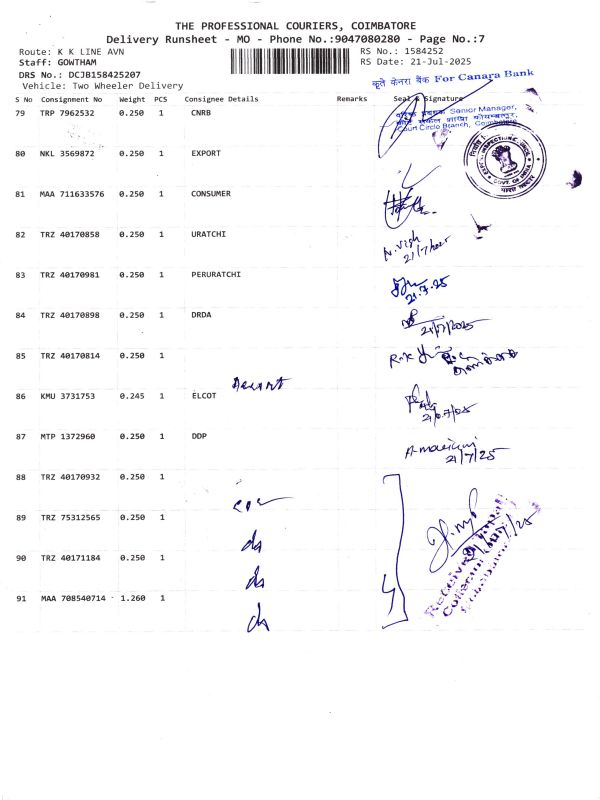 THE PROFESSIONAL COURIERS, COIMBATORE
Delivery Runsheet - MO - Phone No.:9047080280 - Page No.:7
Route: K K LINE AVN RS No.: 1584252
Staff: GOWTHAM RS Date: 21-Jul-2025
DRS No.: DCJB158425207
Vehicle: Two Wheeler Delivery
कृते केनरा बैंक For Canara Bank
S No Consignment No Weight PCS Consignee Details Remarks Seal & Signature
79 TRP 7962532 0.250 1 CNRB
Senior Manager,
Court Circle Branch, Coimbatore
80 NKL 3569872 0.250 1 EXPORT
GOVT. OF INDIA
भारत सरकार
81 MAA 711633576 0.250 1 CONSUMER
82 TRZ 40170858 0.250 1 URATCHI
N. Vish
21/7/2025
83 TRZ 40170981 0.250 1 PERURATCHI
21.7.25
84 TRZ 40170898 0.250 1 DRDA
21/7/2025
85 TRZ 40170814 0.250 1
86 KMU 3731753 0.245 1 ELCOT
21/07/25
87 MTP 1372960 0.250 1 DDP
21/7/25
88 TRZ 40170932 0.250 1
89 TRZ 75312565 0.250 1
do
90 TRZ 40171184 0.250 1
do
91 MAA 708540714 1.260 1
do
4